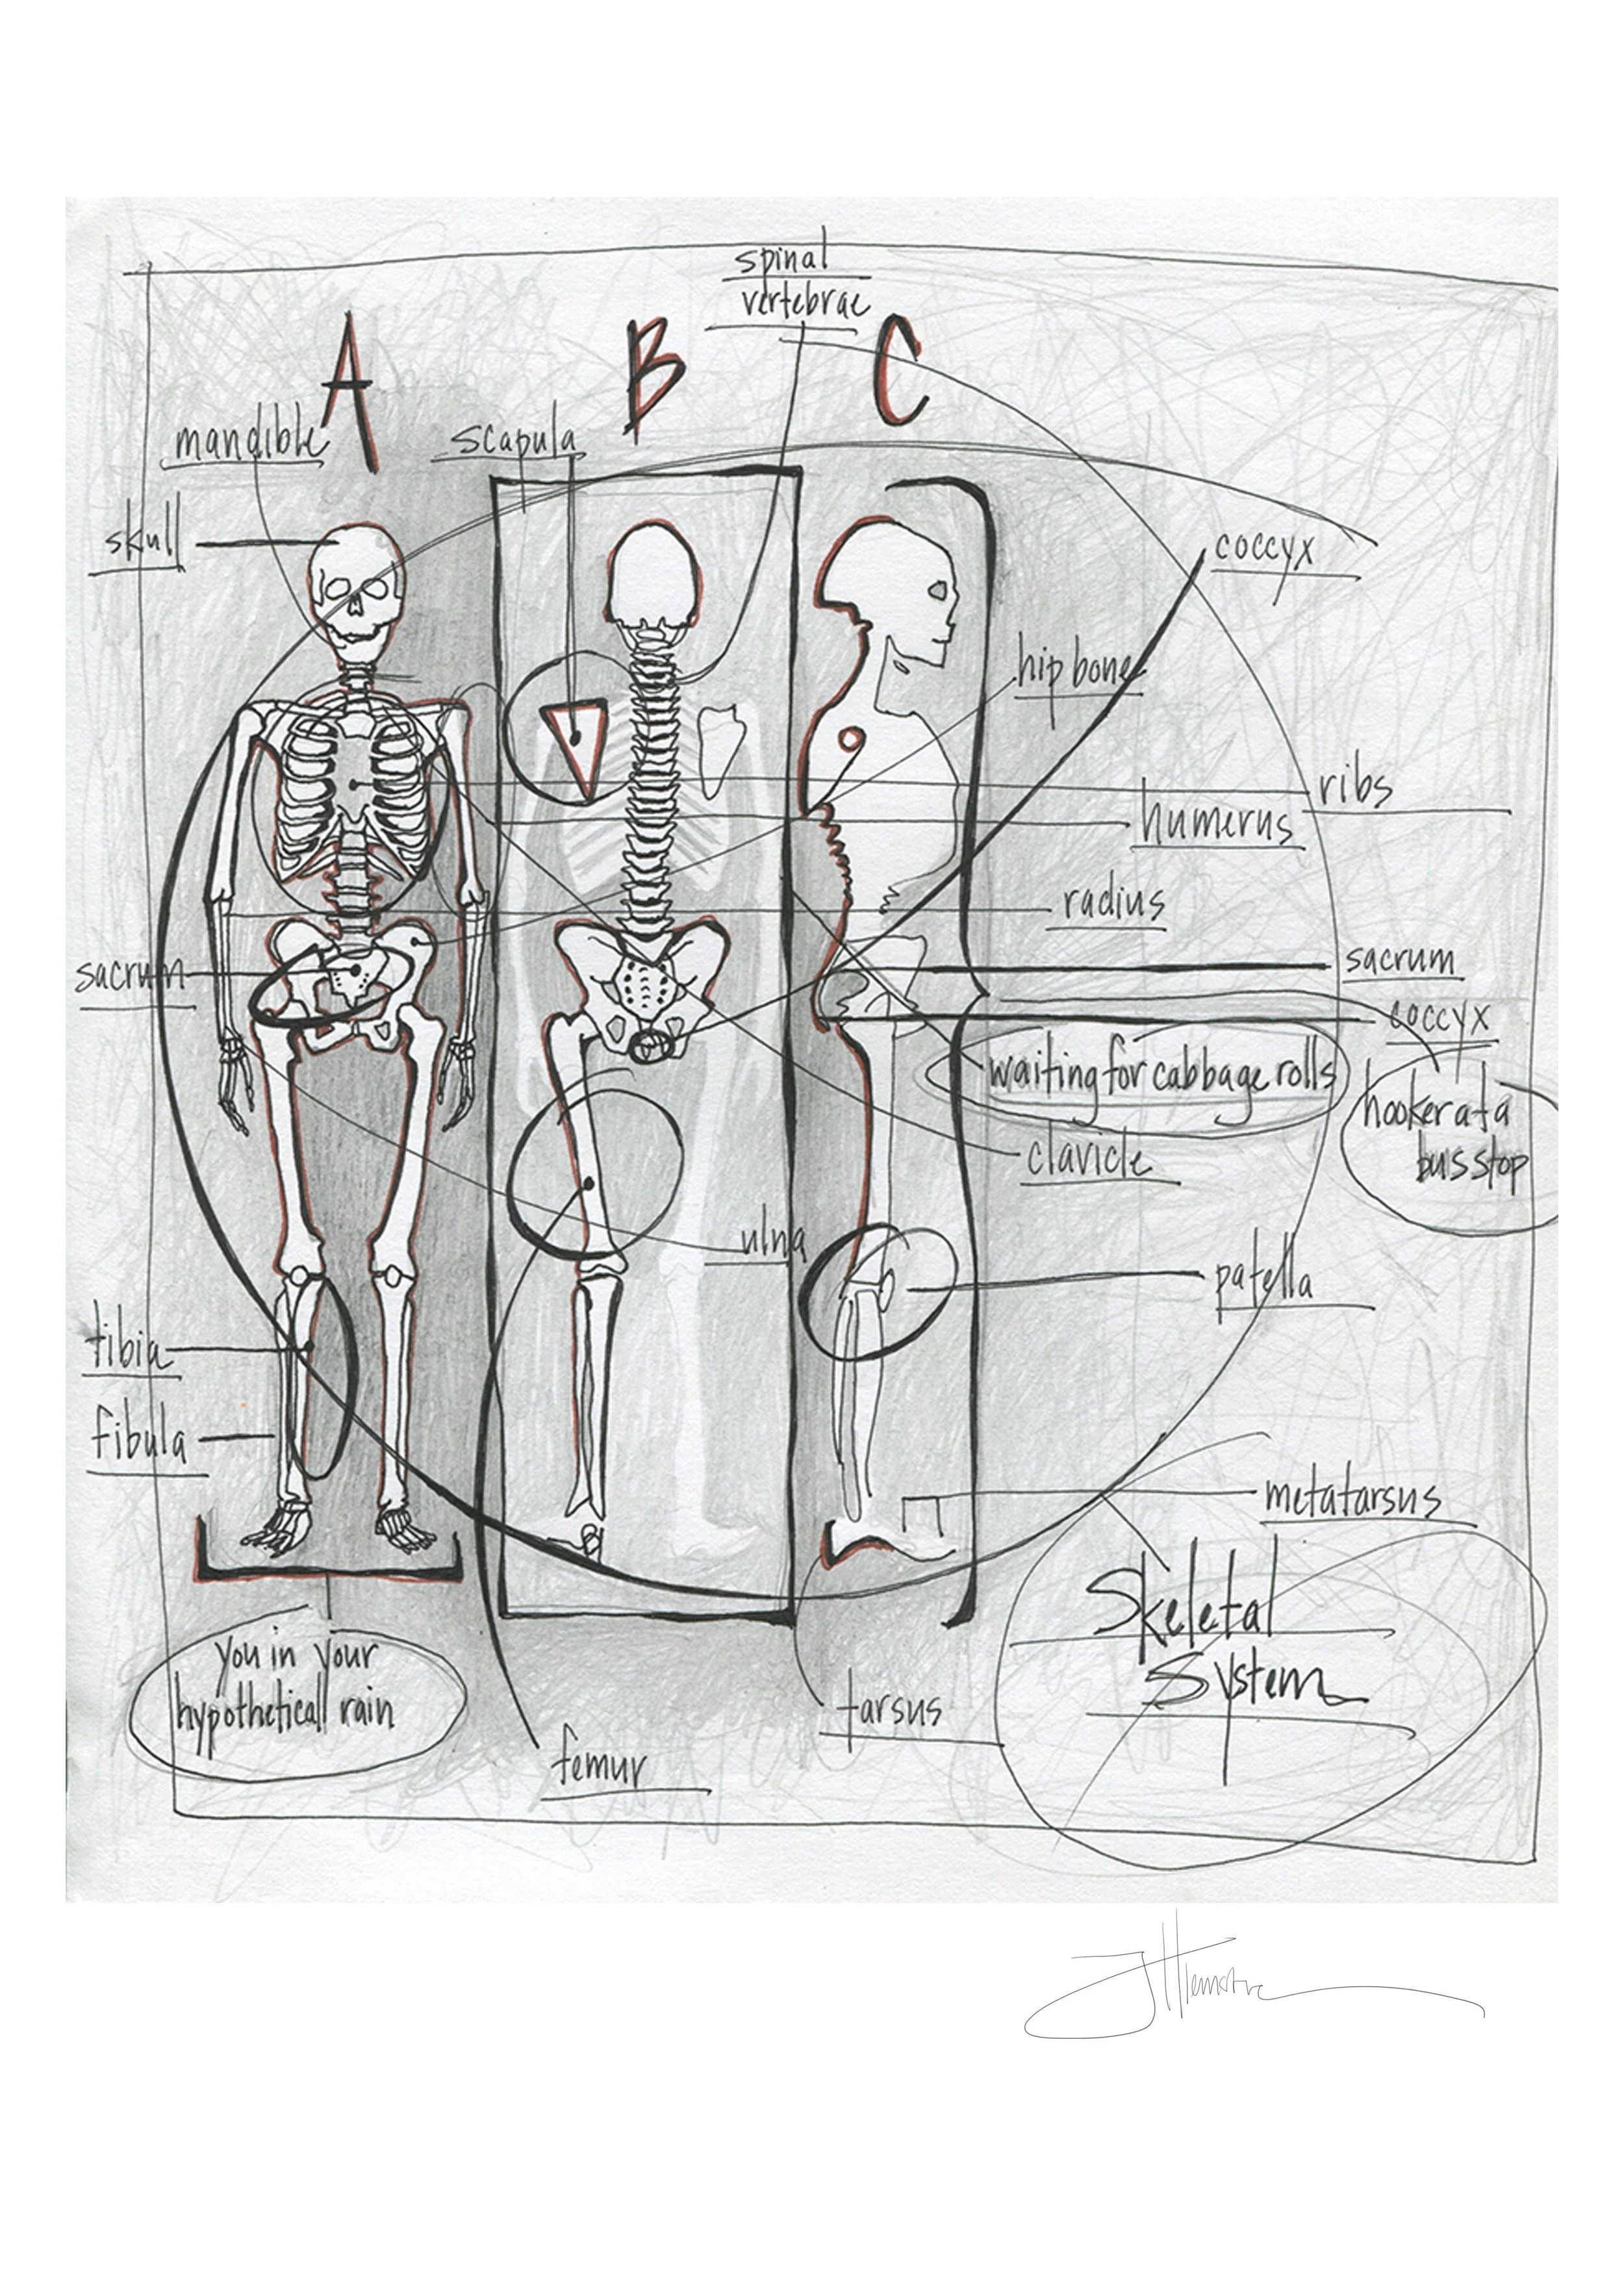 spinal
vertebrae
A
B
C
mandible
scapula
skull
coccyx
hip bone
ribs
humerus
radius
sacrum
sacrum
coccyx
waiting for cabbage rolls
hooker at a
bus stop
clavicle
ulna
patella
tibia
fibula
metatarsus
Skeletal
System
you in your
hypothetical rain
tarsus
femur